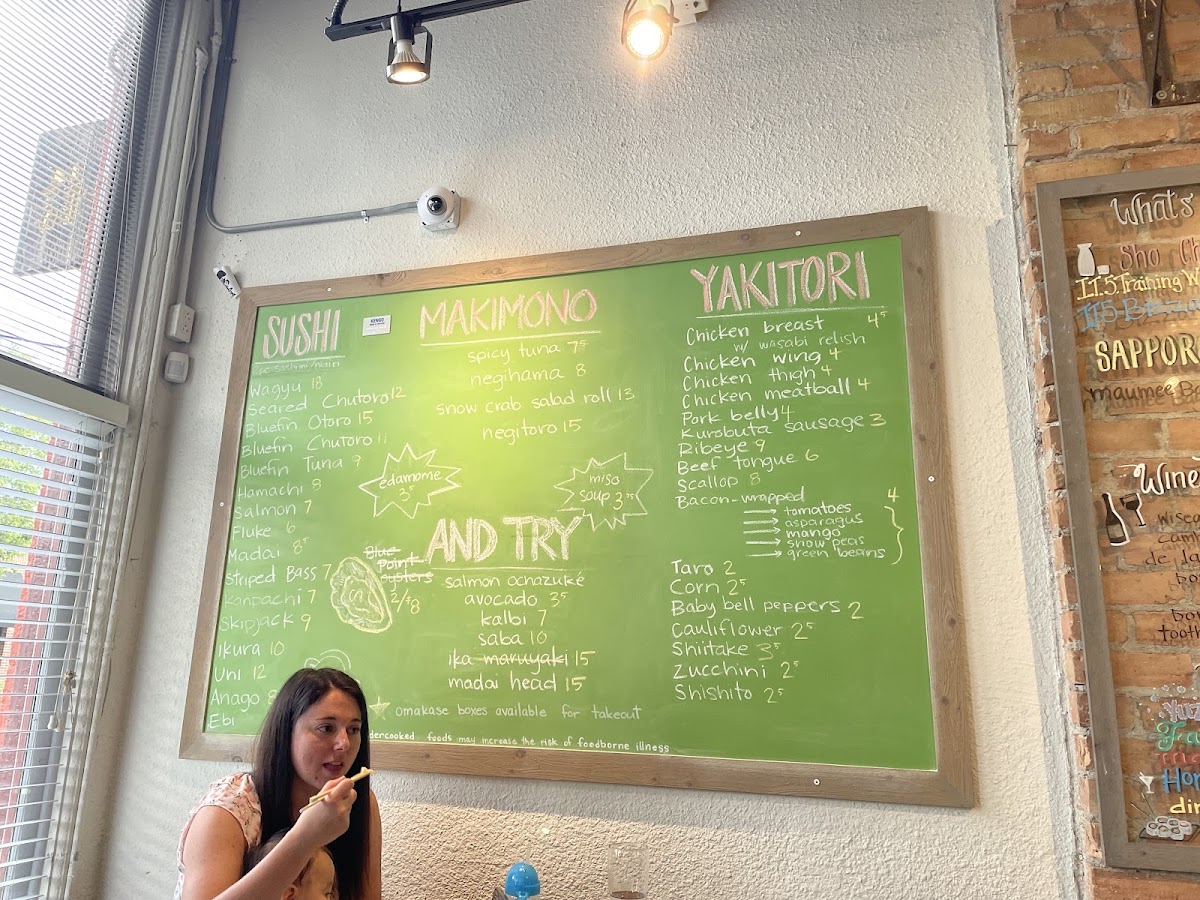 SUSHI
Wagyu 18
Seared Chutoro 12
Bluefin Otoro 15
Bluefin Chutoro 11
Bluefin Tuna 9
Hamachi 8
Salmon 7
Fluke 6
Madai 8⁵
Striped Bass 7
Kanpachi 7
Skipjack 9
Ikura 10
Uni 12
Anago 8
Ebi
MAKIMONO
spicy tuna 7⁵
negihama 8
snow crab salad roll 13
negitoro 15
edamame
3⁵
miso
soup 3⁷⁵
Blue
Point
oysters
2/$8
AND TRY
salmon ochazuké
avocado 3⁵
kalbi 7
saba 10
ika maruyaki 15
madai head 15
omakase boxes available for takeout
dercooked foods may increase the risk of foodborne illness
YAKITORI
Chicken breast 4⁵
w/ wasabi relish
Chicken wing 4
Chicken thigh 4
Chicken meatball 4
Pork belly 4
Kurobuta sausage 3
Ribeye 9
Beef tongue 6
Scallop 8
Bacon-wrapped 4
tomatoes
asparagus
mango
snow peas
green beans
Taro 2
Corn 2⁵
Baby bell peppers 2
Cauliflower 2⁵
Shiitake 3⁵
Zucchini 2⁵
Shishito 2⁵
What's
Sho Ch
II5 Training
II5
SAPPOR
maumee B
Wine
wise
camb
de la
bo
bo
tooth
Yuz
Hon
din